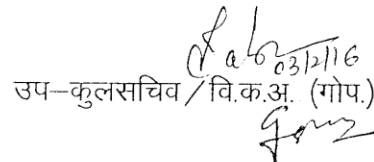 03/2/16
उप–कुलसचिव / वि.क.अ. (गोप.)